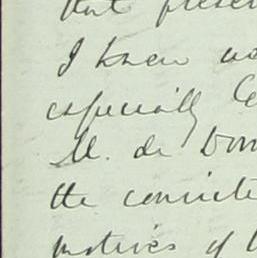 that presen
I knew
especially
M. de Dom
the convicte
motives of